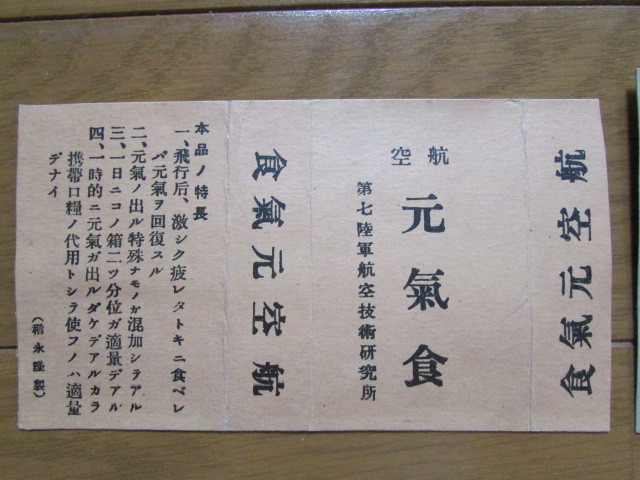 航空元氣食
航空
元氣食
第七陸軍航空技術研究所
航空元氣食
本品ノ特長
一、飛行后、激シク疲レタトキニ食ベレ
バ元氣ヲ回復スル
二、元氣ノ出ル特殊ナモノガ混加シテアル
三、一日ニコノ箱二ツ分位ガ適量デアル
四、一時的ニ元氣ガ出ルダケデアルカラ
携帶口糧ノ代用トシテ使フノハ適量
デナイ